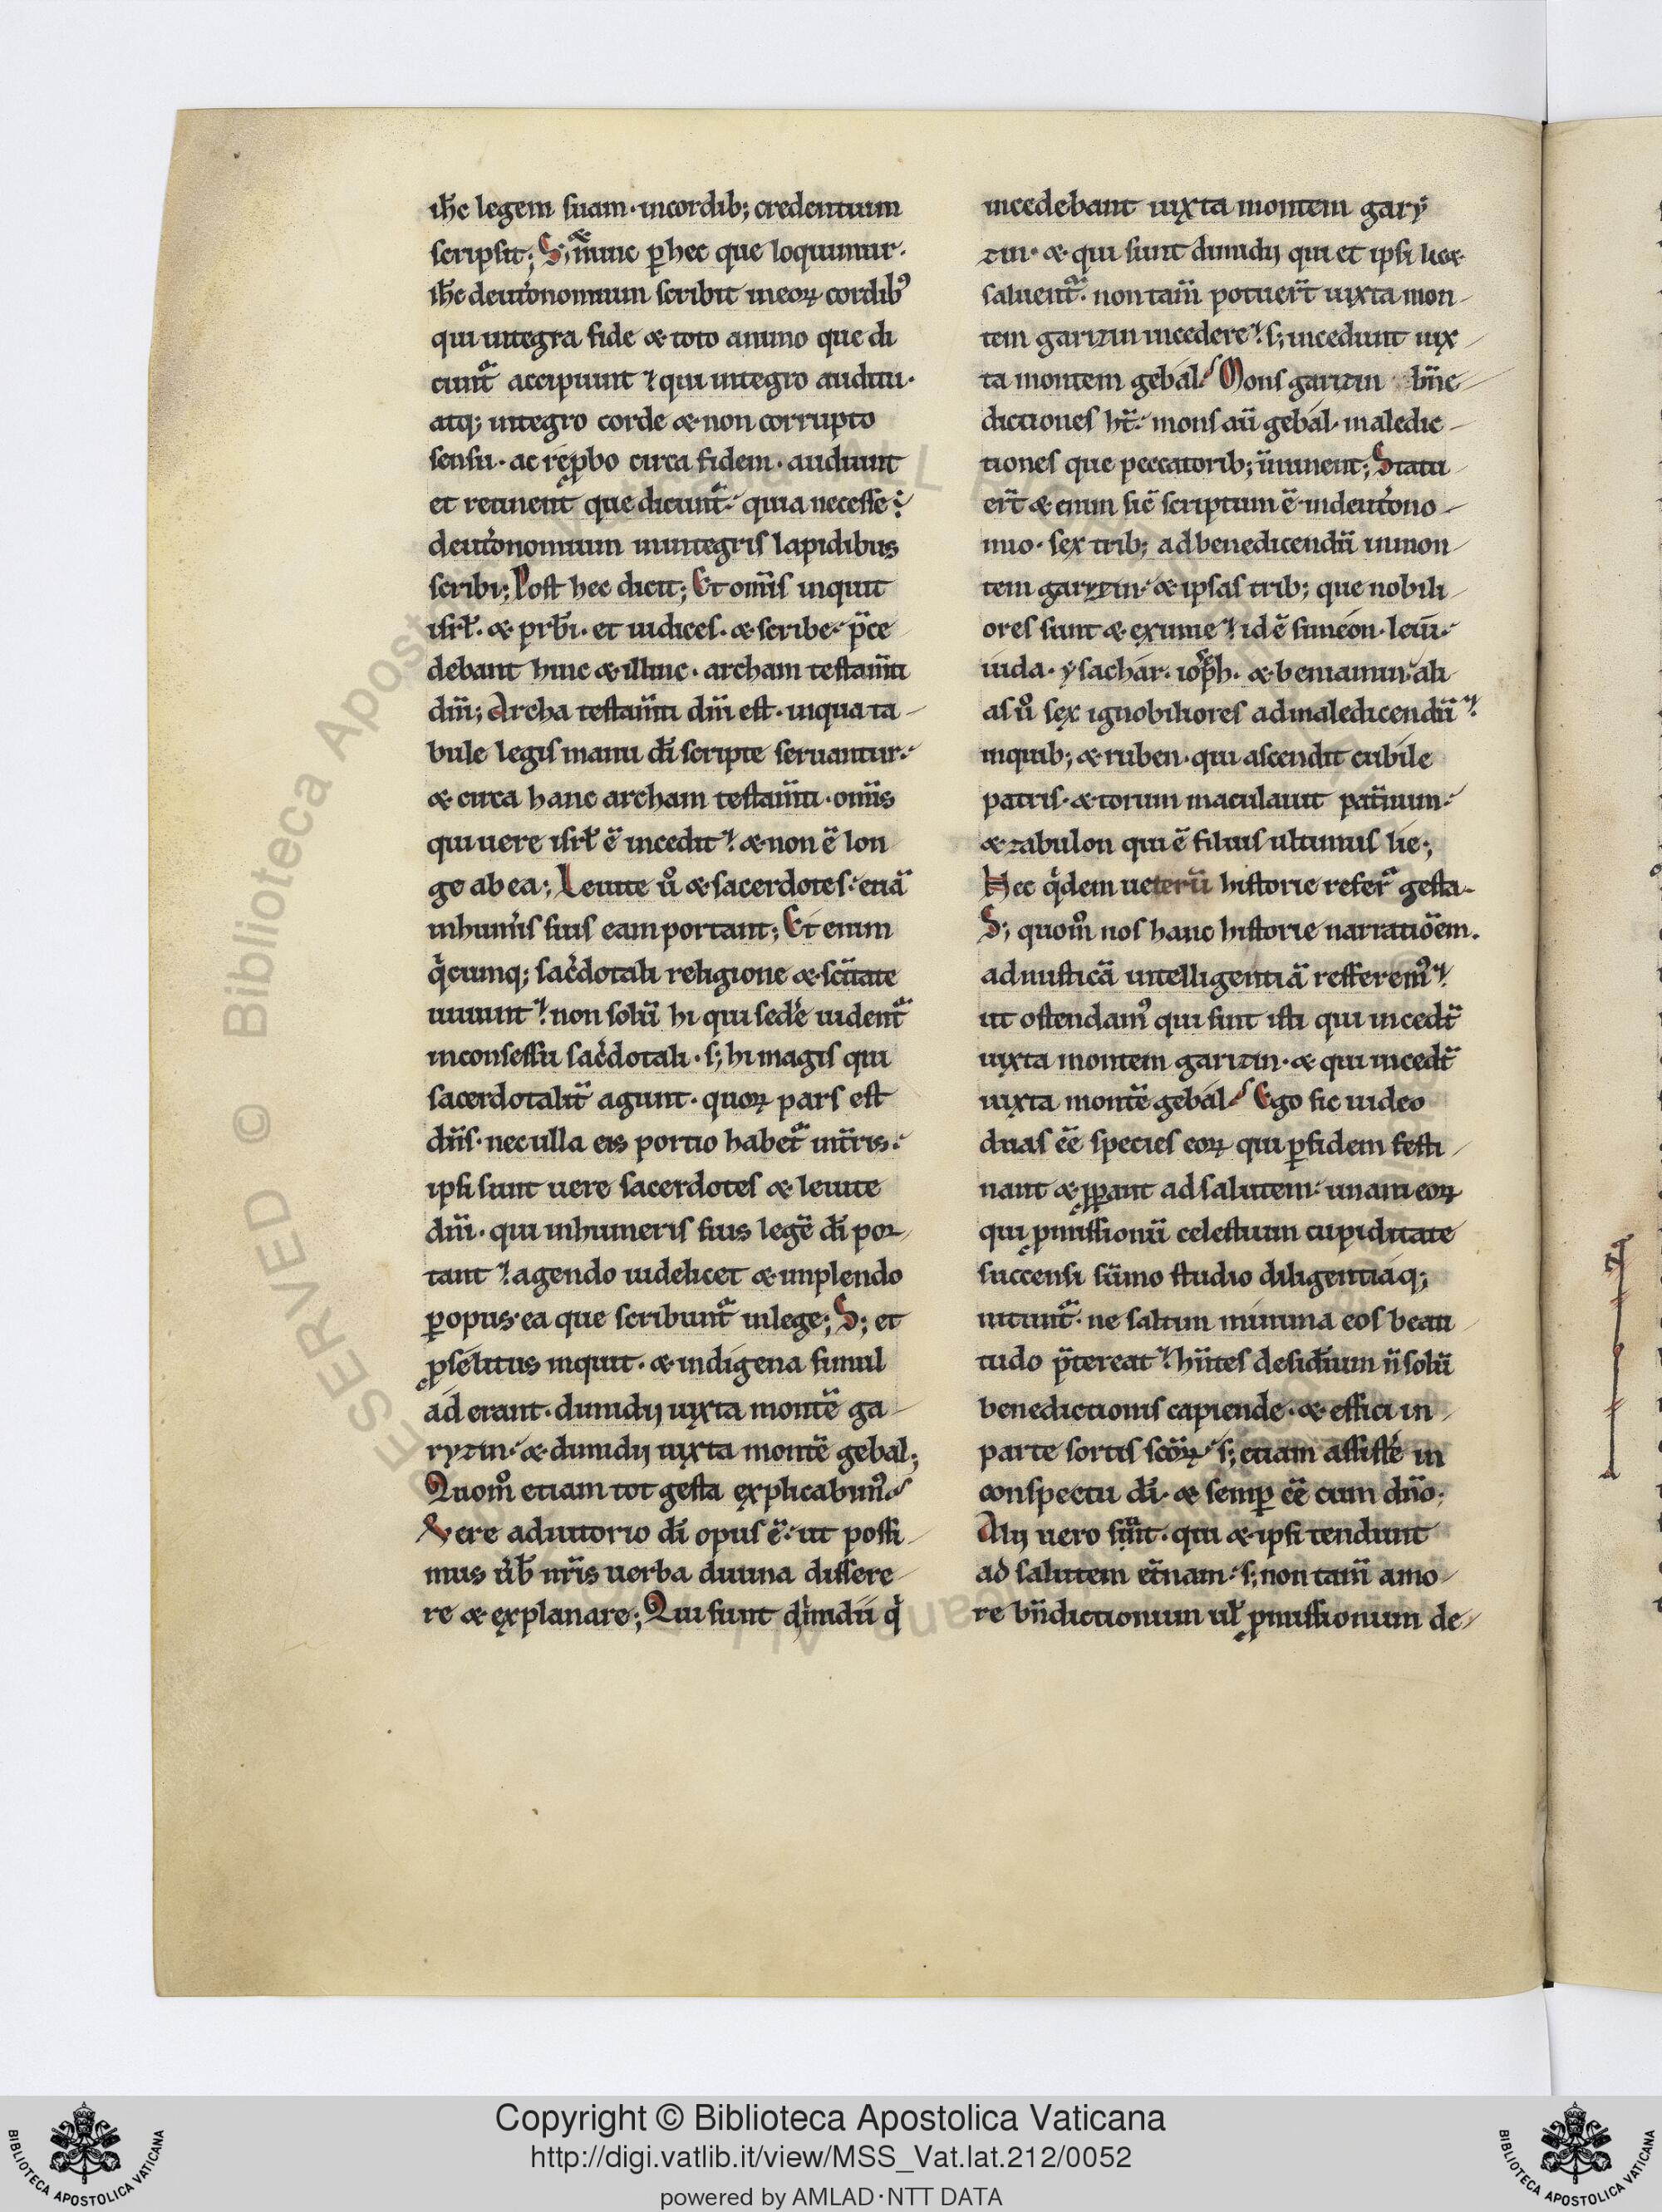 ih̅c legem suam · incordib; credentium
scripsit; S; & nunc ꝑ hec que loquimur ·
ih̅c deut̾onomium scribit in eoꝝ cordibꝰ
qui integra fide & toto animo que di
cunt᷑ accipiunt ⁊ qui integro auditu ·
atq; integro corde & non corrupto
sensu · ac rep̱bo circa fidem · audiunt
et retinent que dicunt᷑ · quia necesse ÷
deut̾onomium in integris lapidibus
scribi; Post hec dicit; Et om̅is inquit
isrł · & prb̅i · et iudices · & scribe · p̅ce
debant hinc & illinc · archam testam̅ti
dn̅i; Archa testam̅ti dn̅i est · in qua ta-
bule legis manu di̅ scripte seruantur ·
& circa hanc archam testam̅ti · om̅is
qui uere isrł e̅ incedit · & non e̅ lon
ge ab ea; Leuite u̾o & sacerdotes · etia̅
in hum̾is suis eam portant; Et enim
q̾cumq; sac̾dotali religione & sc̅itate
uiuunt · non solu̅ hi qui sed̾e uident᷑
in consessu sac̾dotali · s; hi magis qui
sacerdotalit̾ agunt · quoꝝ pars est
dn̅s · nec ulla eis portio habet᷑ int̅ris ·
ipsi sunt uere sacerdotes & leuite
dn̅i · qui in humeris suis lege̅ di̅ por-
tant · agendo uidelicet & implendo
ꝑ opus · ea que scribunt᷑ in lege; S; et
ꝓselitus inquit · & indigena simul
ad erant · dimidij iuxta monte̅ ga-
ryzin · & dimidij iuxta monte̅ gebal;
Quom̊ etiam tot gesta explicabimꝰ
Vere adiutorio di̅ opus e̅ · ut possi-
mus u̾b nr̅is uerba diuina dissere-
re & explanare; Qui sunt dimidii q̾
incedebant iuxta montem gary
zin · & qui sunt dimidij qui et ipsi licet
saluent᷑ · non tam̅ potuer̅t iuxta mon-
tem garizin incedere · s; incedunt iux-
ta montem gebal · Mons garizin bn̅e-
dictiones ht̅ · mons au̅ gebal · maledic-
tiones que peccatorib; iminent; Statu-
er̅t & enim sic̅ scriptum e̅ · in deut̾ono-
mio · sex trib; ad benedicendu̅ in mon-
tem garyzin · & ipsas trib; que nobili-
ores sunt & exime · id e̅ simeon · leui ·
iuda · ysachar · ioseph · & beniamin · ali-
as u̾o sex ignobiliores ad maledicendu̅ ·
in quib; & ruben · qui ascendit cubile
patris · & torum maculauit pat̅num ·
& zabulon qui e̅ filius ultimus lie;
Hec q̾dem ueteru̅ historie refer᷑ gesta ·
S; quom̊ nos hanc historie narratio̅em ·
ad mistica̅ intelligentia̅ refferemꝰ ·
ut ostendamꝰ qui sint isti qui incedt̅
iuxta montem garizin · & qui incedt̅
iuxta monte̅ gebal · Ego sic uideo
duas e̅e species eoꝝ qui ꝑ fidem festi-
nant & ꝓꝑant ad salutem · unam eoꝝ
qui ꝓmissionu̅ celestium cupiditate
succensi su̅mo studio diligentiaq;
nitunt᷑ · ne saltim minima eos beati-
tudo p̅tereat · hn̅tes desid̾ium n̅ solu̅
benedictionis capiende · & effici in
parte sortis sc̅oꝝ · s; etiam assist̾e in
conspectu di̅ · & semꝑ e̅e cum dn̅o ·
Alij uero sunt · qui & ipsi tendunt
ad salutem et̅nam · s; non tam̅ amo-
re bn̅dictionum uł ꝓmissionum de-
Copyright © Biblioteca Apostolica Vaticana
http://digi.vatlib.it/view/MSS_Vat.lat.212/0052
powered by AMLAD·NTT DATA
BIBLIOTECA APOSTOLICA VATICANA
BIBLIOTECA APOSTOLICA VATICANA